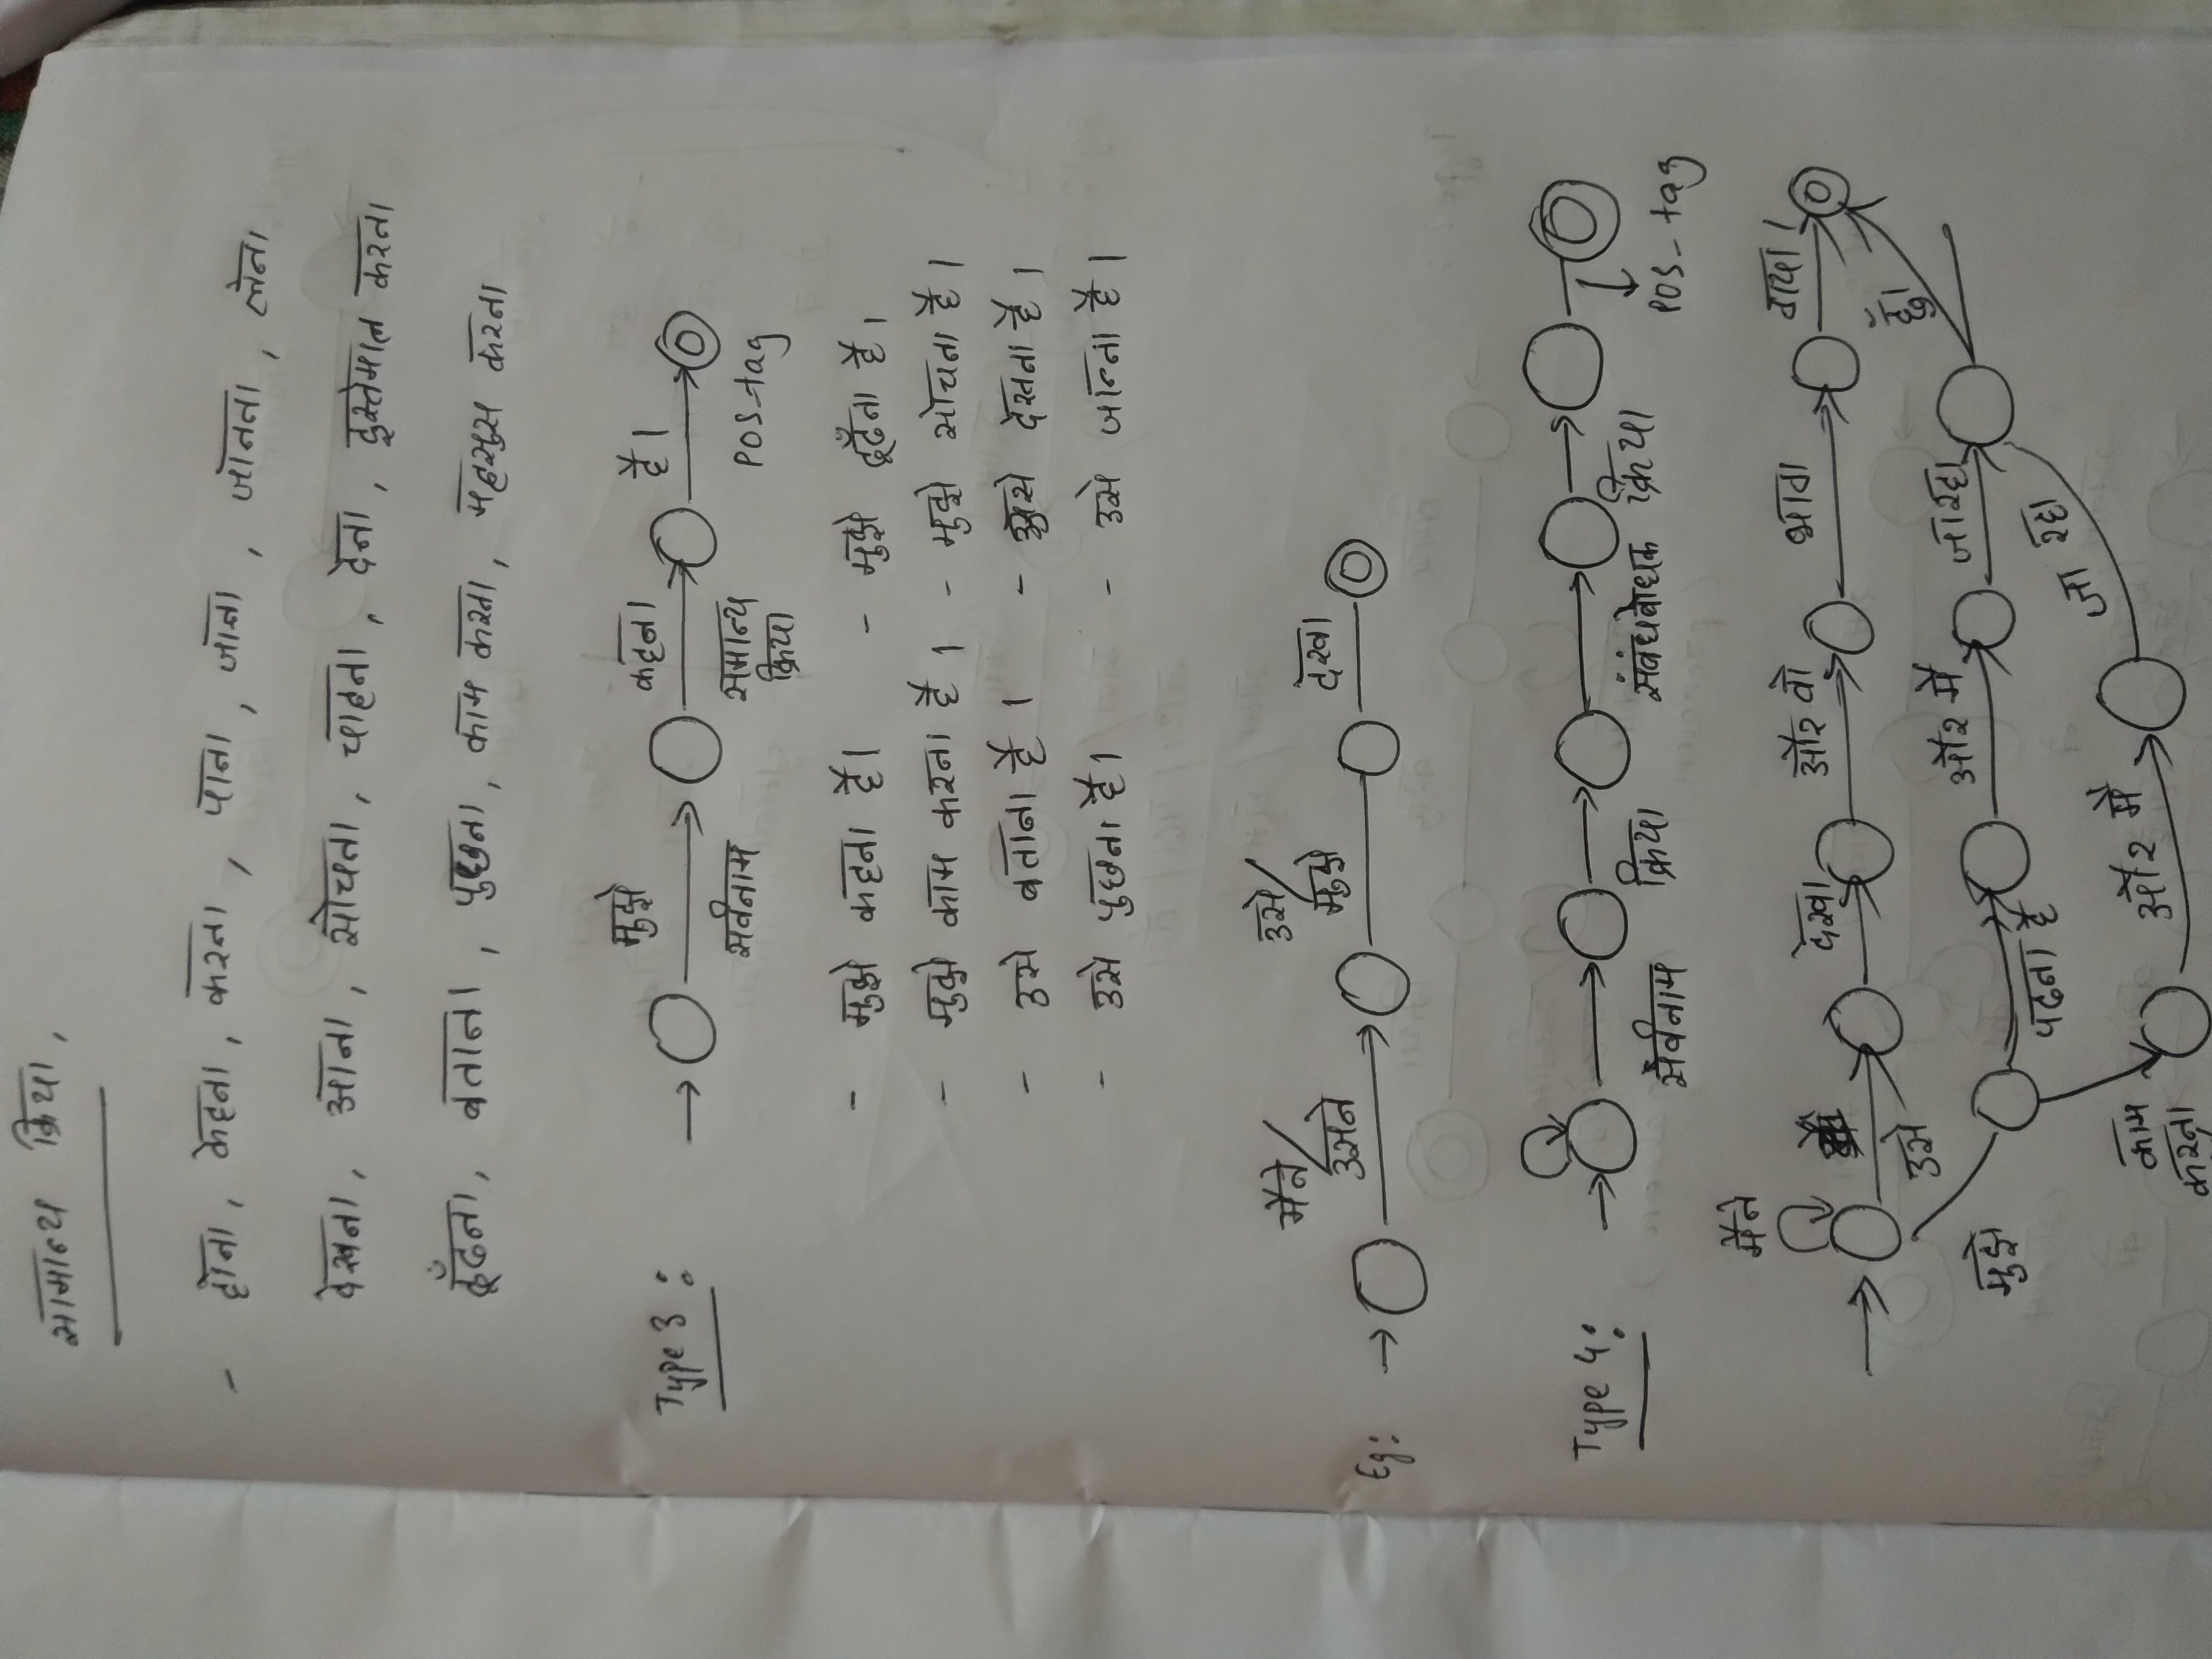 सामान्य क्रिया,
- होना, केहना, करना, पाना, जाना, जानना, लेना
देखना, आना, सोचना, चाहना, देना, इस्तेमाल करना
ढूँढना, बताना, पुछना, काम करना, महसुस करना
Type 3 : मुझे कहना है।
सर्वनाम समान्य क्रिया POS-tag
- मुझे कहना है। - मुझे ढूढँना है।
- मुझे काम करना है । - मुझे सोचना है ।
- उसे बताना है । - उसे देखना है ।
- उसे पुछना है। - उसे जान्ना है ।
मैने/ उसने उसे/ मुझे देखा
Eg:
Type 4:
सर्वनाम क्रिया संबंधबोधक क्रिया POS-tag
मैने
उसे देखा और वो भाग गया।
मुझे पढना है और मै जा रहा हुँ।
काम करना और मै जा रहा